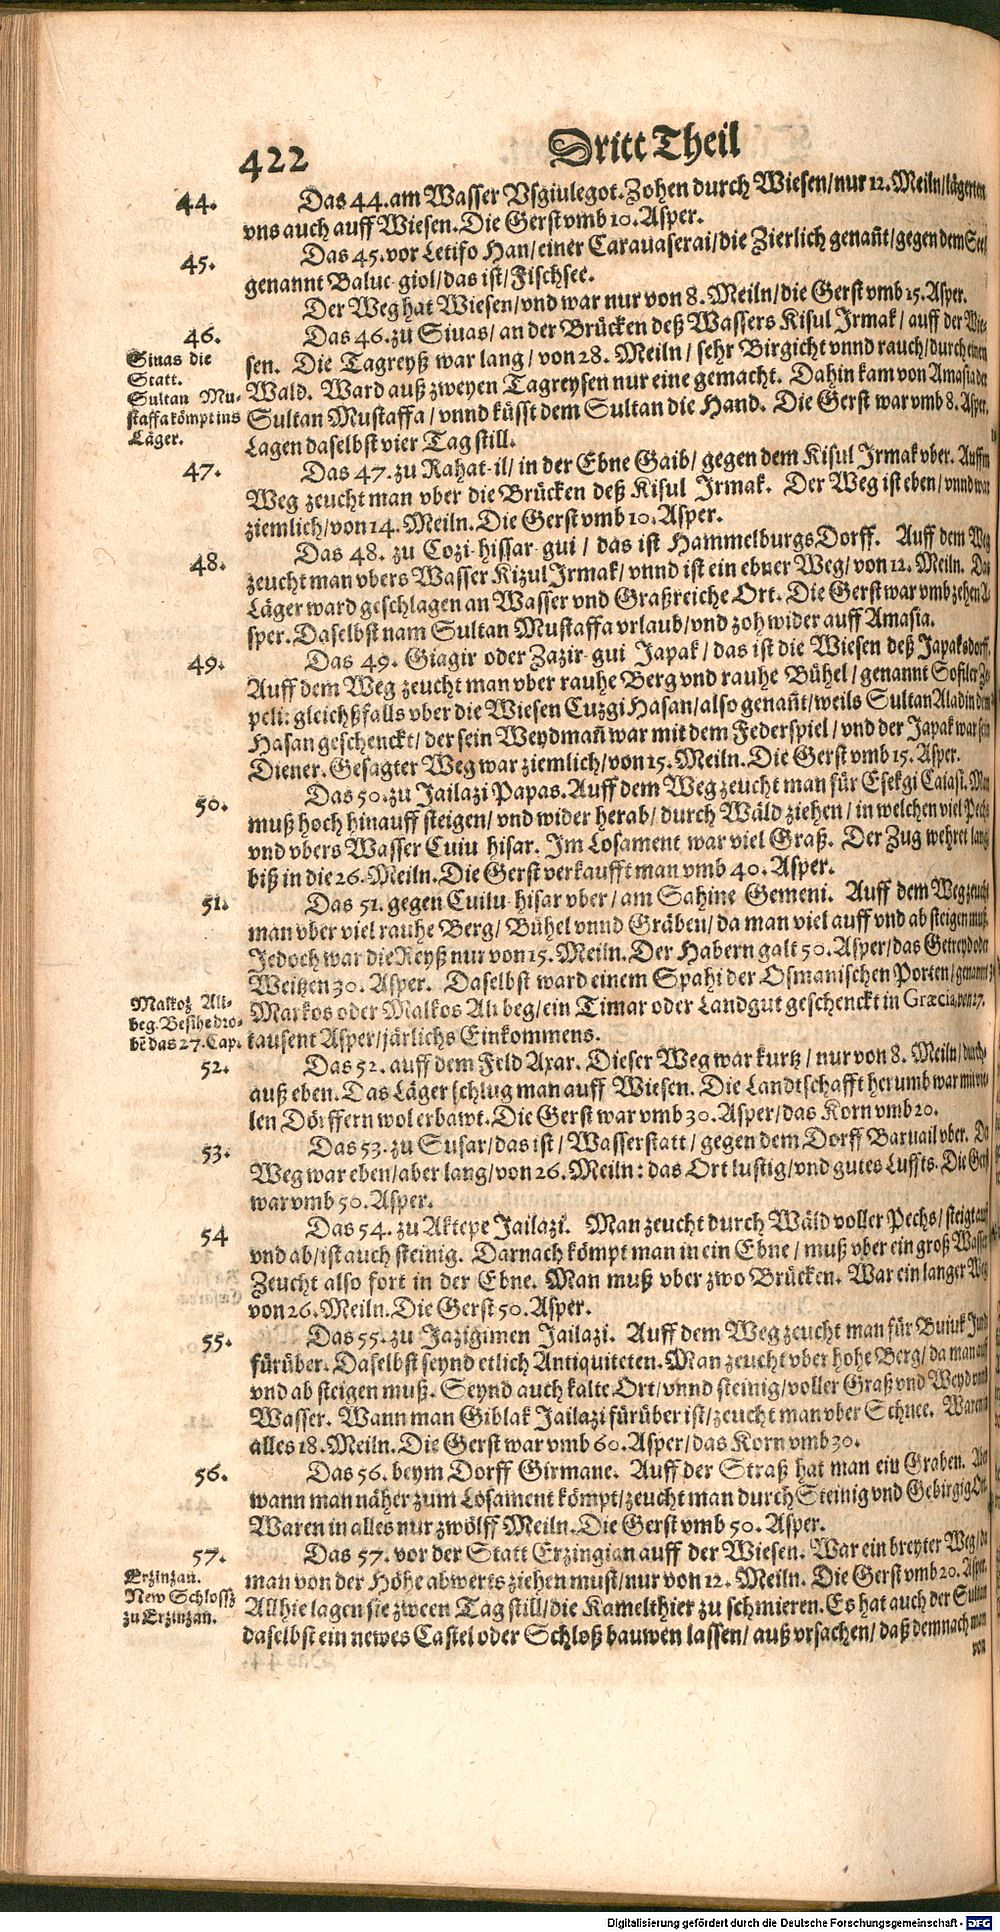 422
Dritt Theil
44.
Das 44. am Wasser Vsgiulegot. Zohen durch Wiesen/ nur 12. Meiln/ lägerten
vns auch auff Wiesen. Die Gerst vmb 10. Asper.
45.
Das 45. vor Letifo Han/ einer Carauaserai/ die Zierlich genañt/ gegen dem See/
genannt Baluc-giol/ das ist/ Fischsee.
Der Weg hat Wiesen/ vnd war nur von 8. Meiln/ die Gerst vmb 15. Asper.
46.
Das 46. zu Siuas/ an der Brücken deß Wassers Kisul Irmak/ auff der Wie-
Siuas die
Statt.
Sultan Mu-
staffa kömpt ins
Läger.
sen. Die Tagreyß war lang/ von 28. Meiln/ sehr Birgicht vnnd rauch/ durch einen
Wald. Ward auß zweyen Tagreysen nur eine gemacht. Dahin kam von Amasia der
Sultan Mustaffa/ vnnd küsst dem Sultan die Hand. Die Gerst war vmb 8. Asper.
Lagen daselbst vier Tag still.
47.
Das 47. zu Rahat-il/ in der Ebne Gaib/ gegen dem Kisul Irmak vber. Auffm
Weg zeucht man vber die Brücken deß Kisul Irmak. Der Weg ist eben/ vnnd war
ziemlich/ von 14. Meiln. Die Gerst vmb 10. Asper.
48.
Das 48. zu Cozi-hissar-gui/ das ist Hammelburgs Dorff. Auff dem Weg
zeucht man vbers Wasser Kizul Irmak/ vnnd ist ein ebner Weg/ von 12. Meiln. Das
Läger ward geschlagen an Wasser vnd Graßreiche Ort. Die Gerst war vmb zehen A-
sper. Daselbst nam Sultan Mustaffa vrlaub/ vnd zoh wider auff Amasia.
49.
Das 49. Giagir oder Zazir-gui Japak/ das ist die Wiesen deß Japaksdorff.
Auff dem Weg zeucht man vber rauhe Berg vnd rauhe Bühel/ genannt Sofiler Ze-
peli: gleichßfalls vber die Wiesen Cuzgi Hasan/ also genañt/ weils Sultan Aladin dem
Hasan geschenckt/ der sein Weydmañ war mit dem Federspiel/ vnd der Japak war sein
Diener. Gesagter Weg war ziemlich/ von 15. Meiln. Die Gerst vmb 15. Asper.
50.
Das 50. zu Jailazi Papas. Auff dem Weg zeucht man für Esekgi Caiasi. Man
muß hoch hinauff steigen/ vnd wider herab/ durch Wäld ziehen/ in welchen viel Pechs
vnd vbers Wasser Cuiu hisar. Im Losament war viel Graß. Der Zug wehret lang
biß in die 26. Meiln. Die Gerst verkaufft man vmb 40. Asper.
51.
Das 51. gegen Cuilu-hisar vber/ am Sahine Gemeni. Auff dem Weg zeucht
man vber viel rauhe Berg/ Bühel vnnd Gräben/ da man viel auff vnd ab steigen muß.
Jedoch war die Reyß nur von 15. Meiln. Der Habern galt 50. Asper/ das Getreyd oder
Weitzen 30. Asper. Daselbst ward einem Spahi der Osmanischen Porten/ genannt
Malkoz Ali-
beg. Besihe dro-
bē das 27. Cap.
Markos oder Malkos Ali beg/ ein Timar oder Landgut geschenckt in Græcia, von 27.
tausent Asper/ järlichs Einkommens.
52.
Das 52. auff dem Feld Axar. Dieser Weg war kurtz/ nur von 8. Meiln/ durch-
auß eben. Das Läger schlug man auff Wiesen. Die Landtschafft herumb war mit vie-
len Dörffern wol erbawt. Die Gerst war vmb 30. Asper/ das Korn vmb 20.
53.
Das 53. zu Susar/ das ist/ Wasserstatt/ gegen dem Dorff Baruail vber. Der
Weg war eben/ aber lang/ von 26. Meiln: das Ort lustig/ vnd gutes Luffts. Die Gerst
war vmb 50. Asper.
54
Das 54. zu Aktepe Jailazi. Man zeucht durch Wäld voller Pechs/ steigt auf
vnd ab/ ist auch steinig. Darnach kömpt man in ein Ebne/ muß vber ein groß Wasser
Zeucht also fort in der Ebne. Man muß vber zwo Brücken. War ein langer Weg
von 26. Meiln. Die Gerst 50. Asper.
55.
Das 55. zu Jazigimen Jailazi. Auff dem Weg zeucht man für Buiuk
fürüber. Daselbst seynd etlich Antiquiteten. Man zeucht vber hohe Berg/ da man auf
vnd ab steigen muß. Seynd auch kalte Ort/ vnnd steinig/ voller Graß vnd Weyd vnnd
Wasser. Wann man Giblak Jailazi fürüber ist/ zeucht man vber Schnee. Waren
alles 18. Meiln. Die Gerst war vmb 60. Asper/ das Korn vmb 30.
56.
Das 56. beym Dorff Girmane. Auff der Straß hat man ein Graben.
wann man näher zum Losament kömpt/ zeucht man durch Steinig vnd Gebirgig Ort.
Waren in alles nur zwölff Meiln. Die Gerst vmb 50. Asper.
57.
Das 57. vor der Statt Erzingian auff der Wiesen. War ein breyter Weg/ da
Erzinzan.
New Schlosß
zu Erzinzan.
man von der Höhe abwerts ziehen must/ nur von 12. Meiln. Die Gerst vmb 20. Asper.
Allhie lagen sie zween Tag still/ die Kamelthier zu schmieren. Es hat auch der Sultan
daselbst ein newes Castel oder Schloß bauwen lassen/ auß vrsachen/ daß demnach man
von
Digitalisierung gefördert durch die Deutsche Forschungsgemeinschaft - DFG